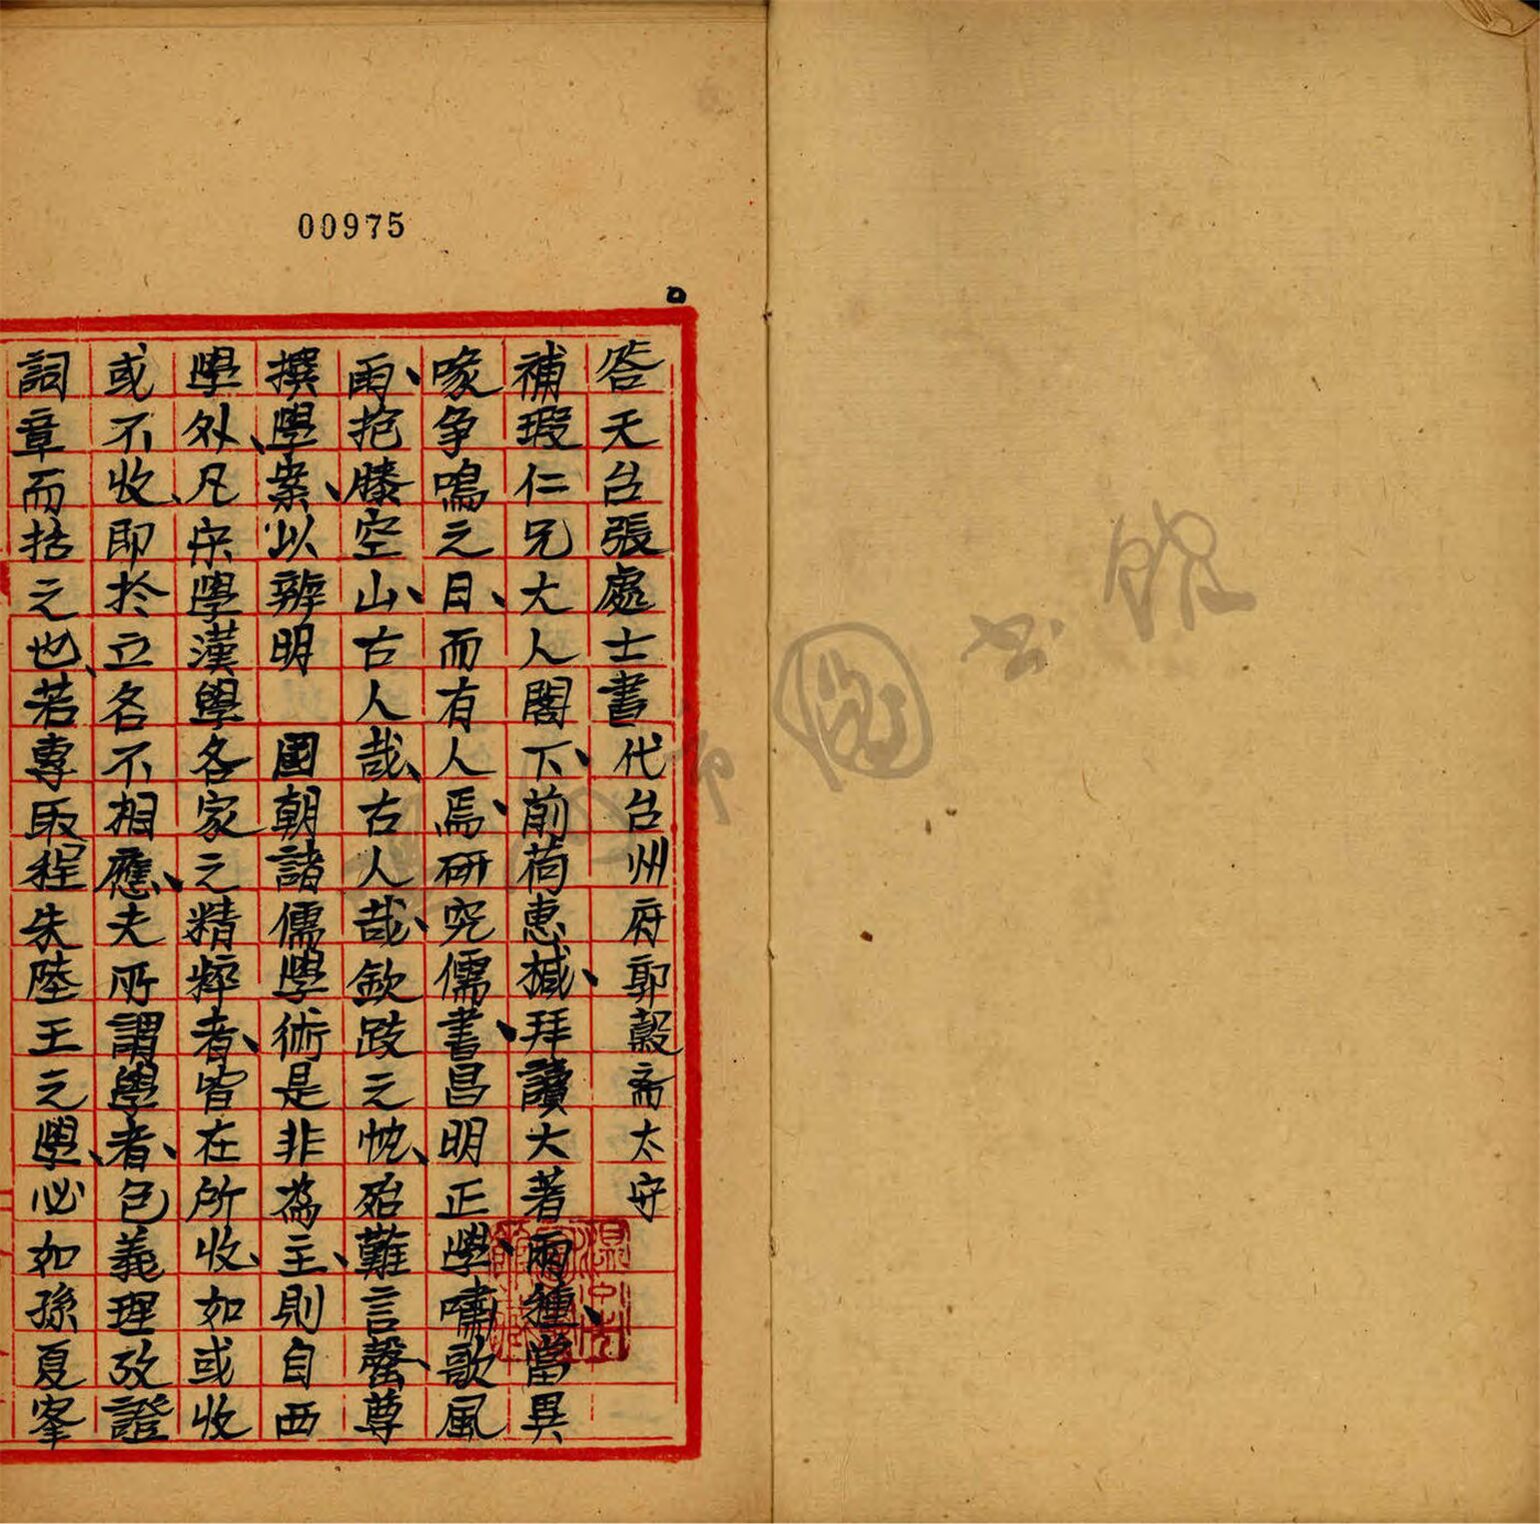 00975
答天台張處士書 代台州府郭穀齋太守
補瑕仁兄大人閣下、前荷惠椷、拜讀大著兩種、當異
喙争鳴之日、而有人焉、研究儒書、昌明正學、嘯歌風
雨、抱膝空山、古人哉、古人哉、欽跂之忱、殆難言罄、尊
撰學案、以辨明 國朝諸儒學術是非為主、則自西
學外、凡宋學漢學各家之精粹者、皆在所收、如或收
或不收、即於立名不相應、夫所謂學者、包義理攷證
詞章而括之也、若專取程朱陸王之學、必如孫夏峯